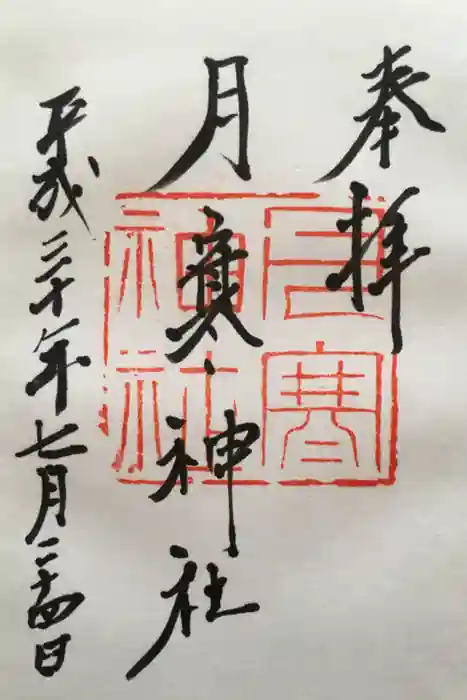 奉拝
月寒神社
平成三十年七月二十四日
月寒
神社